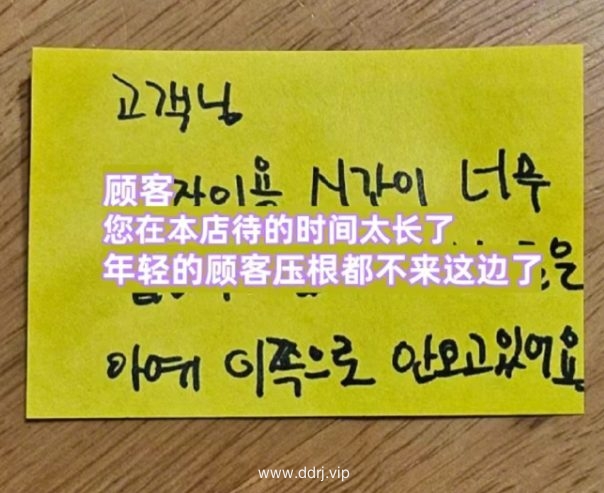 고객님
顾客
자이용 시간이 너무
您在本店待的时间太长了
年轻的顾客压根都不来这边了
은
아예 이쪽으로 안오고있어요
www.ddrj.vip